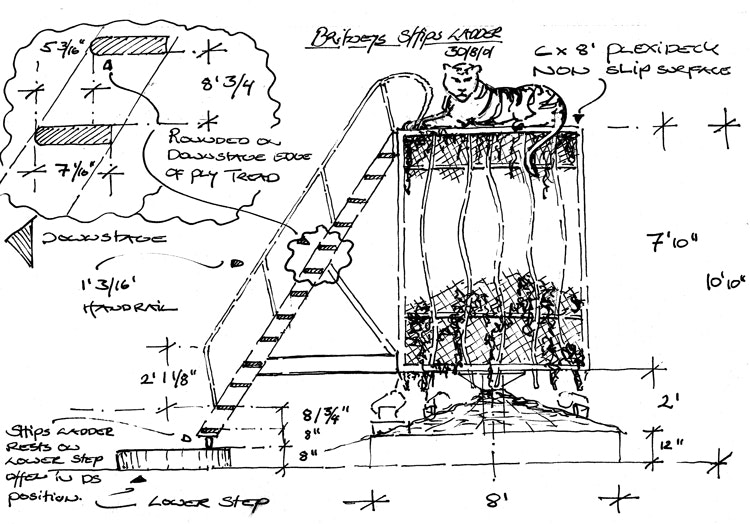 BRITNEYS SHIPS LADDER
30/8/01
6 x 8' PLEXIDECK
NON SLIP SURFACE
5 3/16"
8' 3/4
7 1/16"
ROUNDED ON
DOWNSTAGE EDGE
OF PLY TREAD
DOWNSTAGE
1' 3/16'
HANDRAIL
2' 1 1/8"
SHIPS LADDER
RESTS ON
LOWER STEP
IN DS
POSITION.
LOWER STEP
8/3/4"
8"
8"
8'
7'10"
10'10"
2'
12"